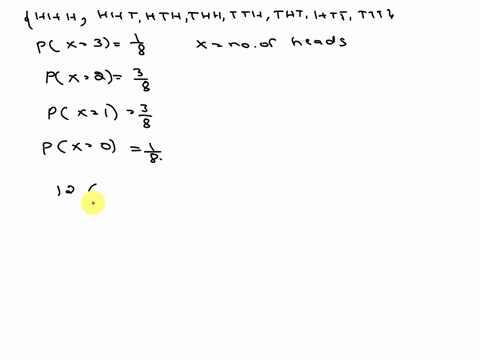 {HHH, HHT, HTH, THH, TTH, THT, HTT, TTT}
P(x=3)=1/8 x=no.of heads
P(x=2)=3/8
P(x=1)=3/8
P(x=0)=1/8.
12 (